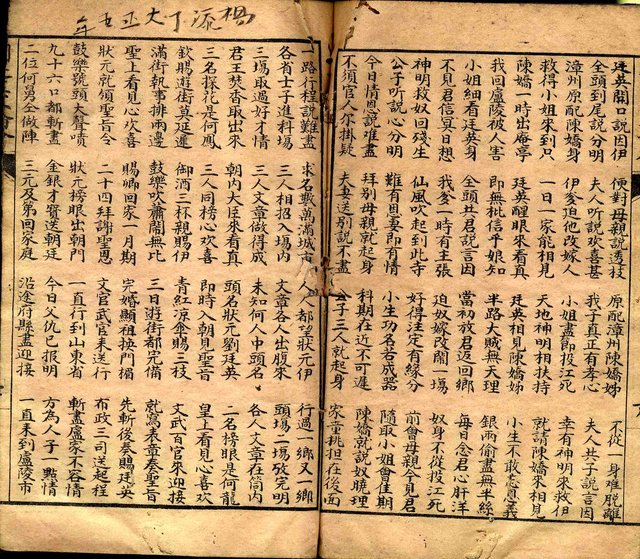 楊添丁大正五年
廷英開口說因伊 便對母親說透枝 原配漳州陳嬌姊 不從一身难脫離
全頭到尾說分明 夫人听說欢喜甚 我子真正有孝心 夫人共子說言因
漳州原配陳嬌身 伊爹迫他改嫁人 小姐盡即投江死 幸有神明來救伊
救得小姐來到只 一日一家能相見 天地神明相扶持 就請陳嬌來相見
陳嬌一時出庵亭 廷英醒眼來看真 廷英相見陳嬌姊 小生不敢忘恩義
我回盧陵被人害 即無批信乎娘知 半路大賊無天理 銀兩偷盡無半絲
小姐細看廷英身 仝頭共君說言因 當初放君返回鄉 每日念君心肝洋
不見君信冥日想 我爹一時有主張 迫奴嫁改鬧一場 奴身不從投江死
神明救奴回殘生 仙風吹起到此寺 好得注定有緣分 前會母親今見君
公子听說心分明 難有恩妻即有情 小生功名若成器 隨取小姐會佳期
今日情恩說难盡 拜別母親就起身 科期在近不可遲 陳嬌就說奴曉理
不須官人尔掛疑 夫妻送別說不盡 公子三人就起身 家童挑担在後面
一路行程說難盡 求名數萬滿城市 人人都望狀元伊 行過一鄉又一鄉
各省士子進科場 三人相招入場內 文章各人出腹來 頭場二場攷完明
三場取過好才情 三人文章做得成 未知何人中頭名 各人文章在筒內
君王焚香取出來 朝內大臣來看真 頭名狀元劉廷英 二名榜眼是何龍
三名探花是何鳳 三人同榜心欢喜 即時入朝見聖君 皇上看見心欢喜
欽賜遊街莫延遲 御酒三杯親賜伊 青紅凉傘賜三枝 文武百官來迎接
滿街執事排兩邊 鼓樂吹簫鬧無比 三日遊街都完備 就寫表章奏聖旨
聖上看見心欢喜 賜卿回家一月期 完婚顯祖換門楣 先斬後奏賜廷英
狀元就領聖旨令 二十四拜謝聖恩 文官武官來送行 布政三司送起程
鼓樂號頭大聲噴 狀元榜眼出朝門 一直行到山東省 斬盡盧家不容情
九十六口都斬盡 金銀才寶送朝廷 今日父仇已报明 方為人子一點情
二位何舅仝做陣 三元及第回家庭 沿途府縣盡迎接 一直來到盧陵市